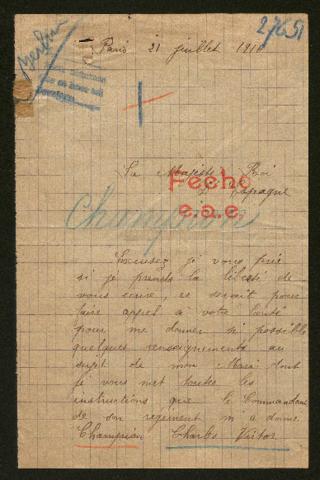 27651
Berlin
Paris 21 juillet 1916
Sa Majesté Roi
d'Espagne
Fecho
e.a.e.
Champion
Excusez je vous prie
si je prends la liberté de
vous écrire, ce serait pour
faire appel à votre bonté
pour me donner si possible
quelques renseignements au
sujet de mon Mari dont
je vous met toutes les
instructions que le Commandant
de son régiment m'a donné
Champion Charles Victor